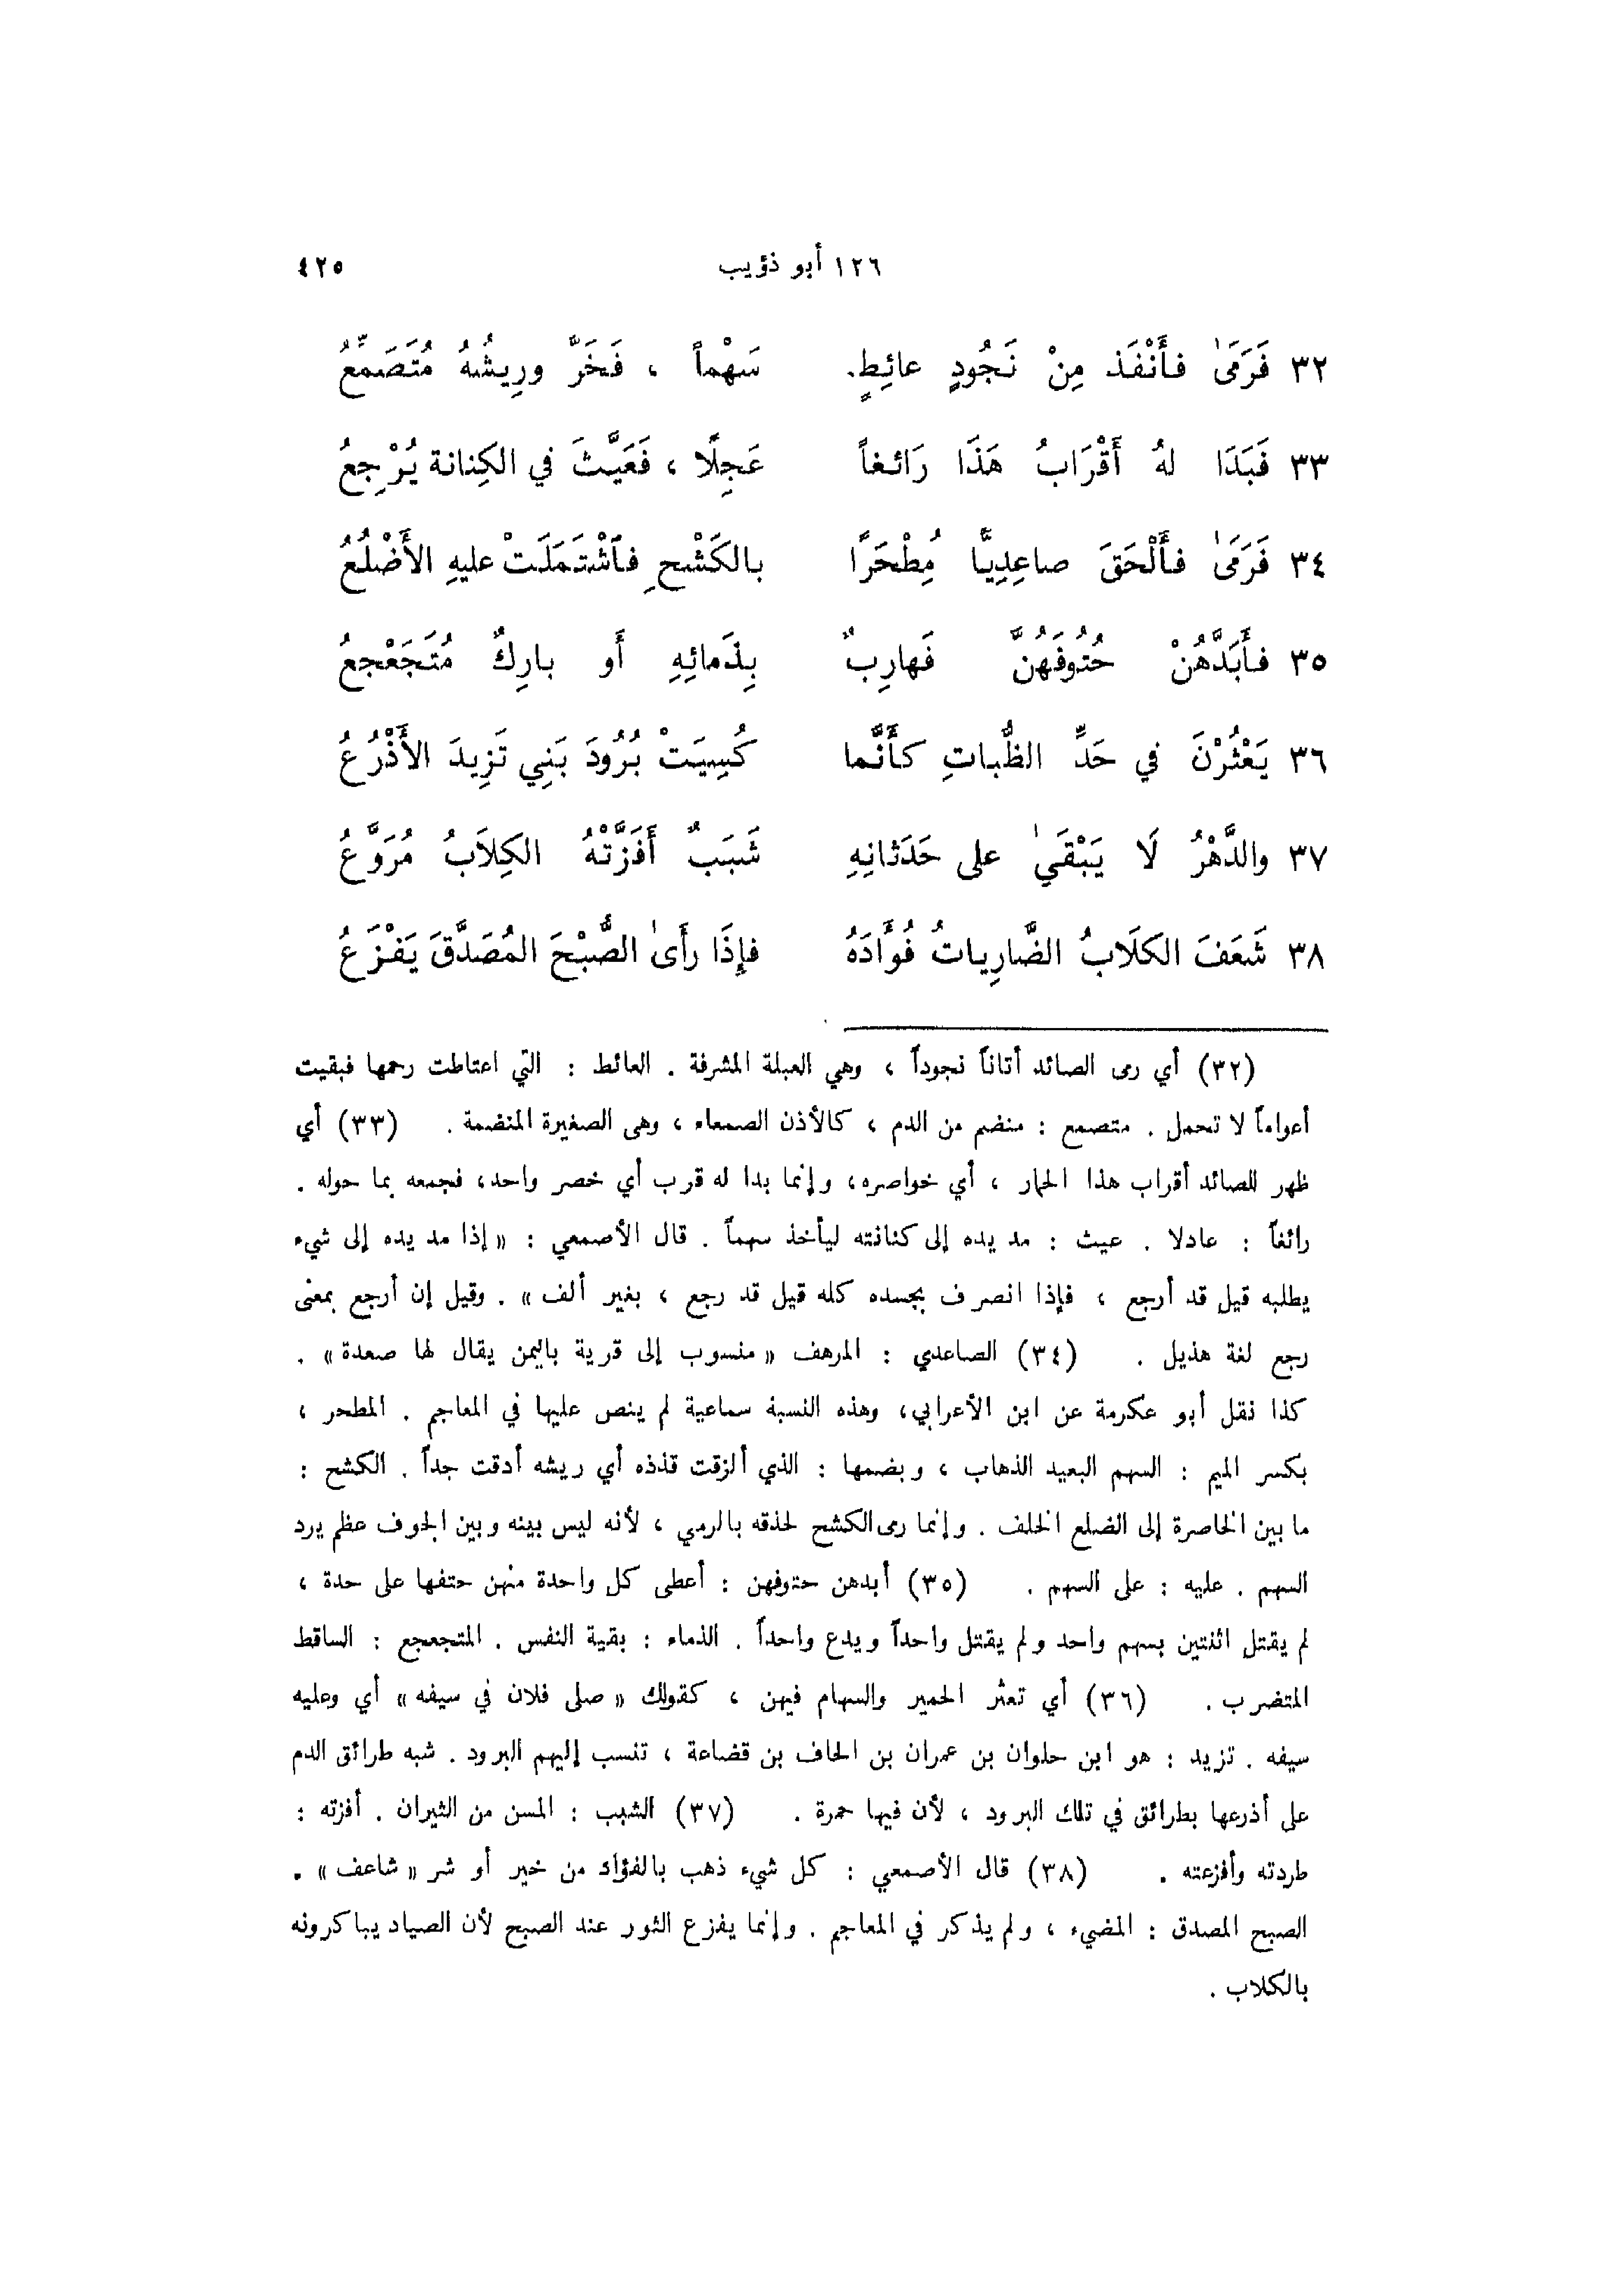 ١٢٦ أبو ذؤيب ٤٢٥
٣٢ فَرَمَىٰ فأَنْفَذ مِنْ نَجُودٍ عائِطٍ. سَهْماً ، فَخَرَّ ورِيشُهُ مُتَصَمِّعُ
٣٣ فَبَدَا لهُ أَقْرَابُ هَذَا رَائغاً عَجِلًا ، فَعَيَّثَ في الكِنانة يُرْجِعُ
٣٤ فَرَمَىٰ فأَلْحَقَ صاعِدِيًّا مُطْحَرًا بالكَشْحِ فاَشْتَمَلَتْ عليهِ الأَضْلُعُ
٣٥ فأَبَدَّهُنْ حُتُوفَهُنَّ فَهارِبٌ بِذَمائِهِ أَو بارِكٌ مُتَجَعْجعُ
٣٦ يَعْثُرْنَ في حَدِّ الظُّباتِ كأَنَّما كُسِيَتْ بُرُودَ بَنِي تَزِيدَ الأَذْرُعُ
٣٧ والدَّهْرُ لَا يَبْقَىٰ على حَدَثانِهِ شَبَبٌ أَفَزَّتْهُ الكِلاَبُ مُرَوَّعُ
٣٨ شَعَفَ الكَلَابُ الضَّارِياتُ فُوأَدَهُ فإِذَا رأَىٰ الصُّبْحَ المُصَدَّقَ يَفْزَعُ
(٣٢) أي رمى الصائد أتاناً نجوداً ، وهي العبلة المشرفة . العائط : التي اعتاطت رحمها فبقيت
أعواماً لا تحمل . متصمع : منضم من الدم ، كالأذن الصمعاء ، وهى الصغيرة المنضمة . (٣٣) أي
ظهر للصائد أقراب هذا الحمار ، أي خواصره، وإنما بدا له قرب أي خصر واحد، فجمعه بما حوله .
رائغاً : عادلا . عيث : مد يده إلى كنانته ليأخذ سهماً . قال الأصمعي : « إذا مد يده إلى شيء
يطلبه قيل قد أرجع ، فإذا انصرف بجسده كله قيل قد رجع ، بغير ألف » . وقيل إن أرجع بمعنى
رجع لغة هذيل . (٣٤) الصاعدي : المرهف « منسوب إلى قرية باليمن يقال لها صعدة » .
كذا نقل أبو عكرمة عن ابن الأعرابي، وهذه النسبة سماعية لم ينص عليها في المعاجم . المطحر ،
بكسر الميم : السهم البعيد الذهاب ، وبضمها : الذي ألزقت قذذه أي ريشه أدقت جداً . الكشح :
ما بين الخاصرة إلى الضلع الخلف . وإنما رمى الكشح لحذقه بالرمي ، لأنه ليس بينه وبين الجوف عظم يرد
السهم . عليه : على السهم . (٣٥) أبدهن حتوفهن : أعطى كل واحدة منهن حتفها على حدة ،
لم يقتل اثنتين بسهم واحد ولم يقتل واحداً ويدع واحداً . الذماء : بقية النفس . المتجعجع : الساقط
المتضرب . (٣٦) أي تعثر الحمير والسهام فيهن ، كقولك « صلى فلان في سيفه » أي وعليه
سيفه . تزيد : هو ابن حلوان بن عمران بن الحاف بن قضاعة ، تنسب إليهم البرود . شبه طرائق الدم
على أذرعها بطرائق في تلك البرود ، لأن فيها حمرة . (٣٧) الشبب : المسن من الثيران . أفزته :
طردته وأفزعته . (٣٨) قال الأصمعي : كل شيء ذهب بالفؤاد من خير أو شر « شاعف » .
الصبح المصدق : المضيء ، ولم يذكر في المعاجم . وإنما يفزع الثور عند الصبح لأن الصياد يباكرونه
بالكلاب .